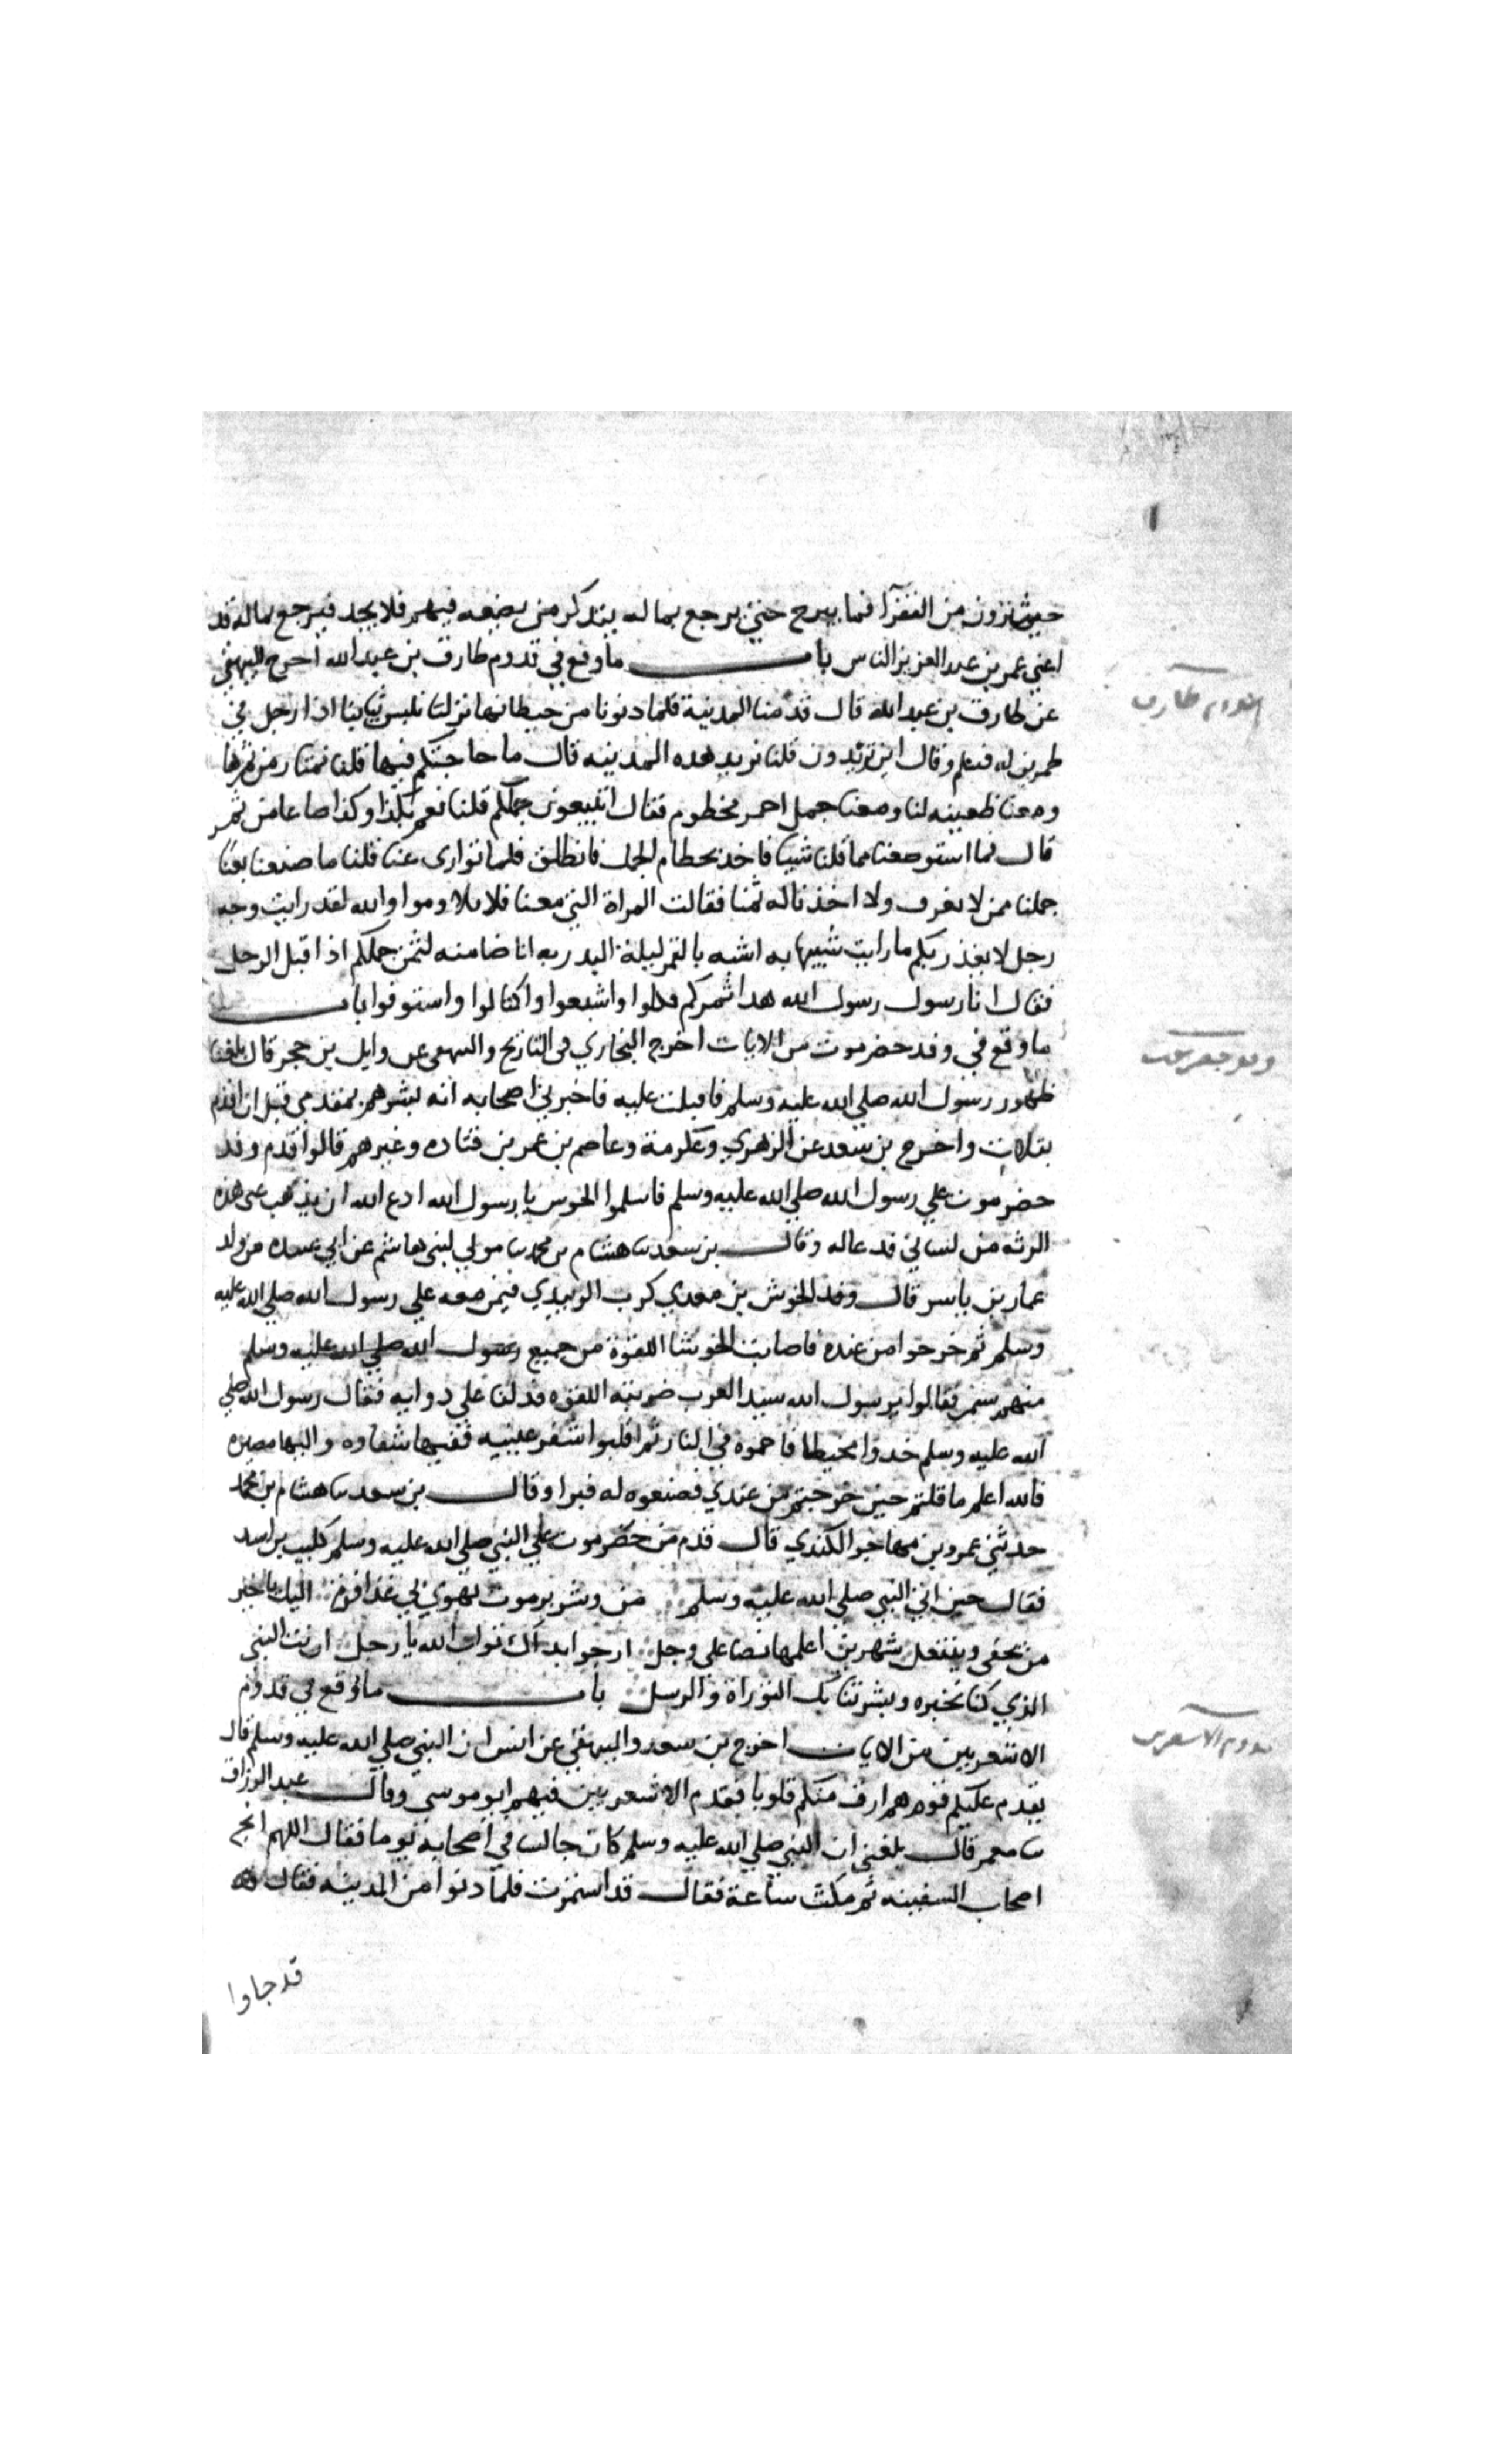 حيث ترون من الفقرآ فما يبرح حتي يرجع بماله يتذكر من يضعه فيهم فلا يجد فيرجع بماله قد
اغني عمر بن عبد العزيز الناس باب ما وقع في قدوم طارق بن عبد الله اخرج البيهقي
عن طارق بن عبد الله قال قدمنا المدينة فلما دنونا من حيطانها نزلنا نلبس ثيابنا اذا رجل في
طمرين له فسلم وقال اين تريدون قلنا نريد هذه المدينه قال ما حاجتكم فيها قلنا نمتار من تمرها
ومعنا ظعينه لنا ومعنا جمل احمر مخطوم فقال اتبيعوني جملكم قلنا نعم بكذا وكذا صاعا من تمر
قال فما استوضعنا مما قلنا شيا فاخذ بخطام الجمل فانطلق فلما توارى عنا قلنا ما صنعنا بعنا
جملنا ممن لا نعرف ولا اخذنا له ثمنا فقالت المراة التي معنا فلا تلاوموا والله لقد رايت وجه
رجل لا يغدر بكم ما رايت شبيها به اشبه بالقمر ليلة البدر به انا ضامنه لثمن جملكم اذا قبل الرجل
فقال انا رسول رسول الله هذا تمركم فكلوا واشبعوا واكتالوا واستوفوا باب
ما وقع في وفد حضرموت من الايات اخرج البخاري في التاريخ والبيهقي عن وايل بن حجر قال بلغنا
ظهور رسول الله صلي الله عليه وسلم فاقبلت عليه فاخبرني اصحابه انه بشرهم بمقدمي قبل ان اقدم
بثلاث واخرج بن سعد عن الزهري وعكرمة وعاصم بن عمر بن قتاده وغيرهم قالوا قدم وفد
حضرموت علي رسول الله صلي الله عليه وسلم فاسلموا الخوس يا رسول الله ادع الله ان يذهب عني هذه
الرثه من لساني فدعا له وقال بن سعد ثنا هشام بن محمد ثنا مولي لبني هاشم عن ابي عبيده من ولد
عمار بن ياسر قال وفد الخوش بن معدي كرب الوبيدي فيمن معه علي رسول الله صلي الله عليه
وسلم ثم خرجوا من عنده فاصابت الخوشا اللقوة من جميع رسول الله صلي الله عليه وسلم
منهم سفر فقالوا يرسول الله سيد العرب ضربته اللقوه فدلنا علي دوايه فقال رسول الله صلي
الله عليه وسلم خدوا مخيطا فاحموه في النار ثم اقلبوا شفر عينيه ففيها شفاوه واليها مصيره
فالله اعلم ما قلتم حين خرجتم من عندي فصنعوه له فبرا وقال بن سعد ثنا هشام بن محمد
حدثني عمرو بن مهاجر الكندي قال قدم من حضرموت علي النبي صلي الله عليه وسلم كليب بن اسد
فقال حين اتي النبي صلي الله عليه وسلم من وشز برموت تهوي بي غذافرة اليك يا خير
من يحفي وينتعل شهرين اعلمها نصا علي وجل ارجوا بداك ثواب الله يا رجل انت النبي
الذي كنا نخبره وبشرتنا بك التوراة والرسل باب ما وقع في قدوم
الاشعريين من الايات اخرج بن سعد والبيهقي عن انس ان النبي صلي الله عليه وسلم قال
يقدم عليكم قوم هم ارق منكم قلوبا فقدم الاشعريين فيهم ابو موسي وقال عبد الرزاق
ثنا معمر قال بلغني ان النبي صلي الله عليه وسلم كان جالسا في اصحابه يوما فقال اللهم انج
اصحاب السفينه ثم مكث ساعة فقال قد استمرت فلما دنوا من المدينه فقال
قد جاوا
قدوم طارق
وفد حضرموت
قدوم الاشعريين